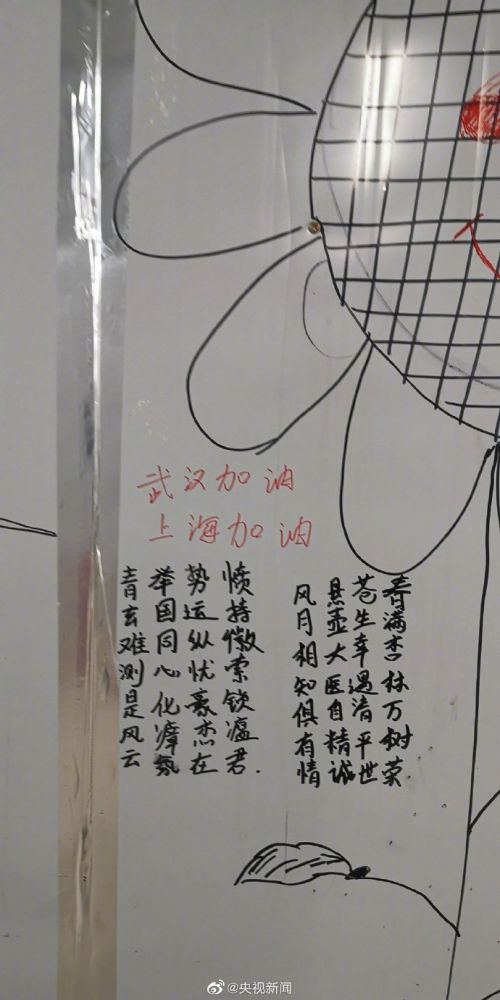 武汉加油
上海加油
春满杏林万树荣
苍生幸遇清平世
悬壶大医自精诚
风月相知俱有情
愤持徽索锁瘟君.
势运纵忧豪杰在
举国同心化瘴氛
青玄难测是风云
@央视新闻